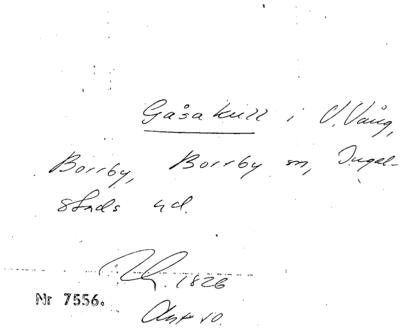 Gåsakull i V. Vång,
Borrby, Borrby sn, Ingel-
stads hd.
1826
Nr 7556.
Akt 10.